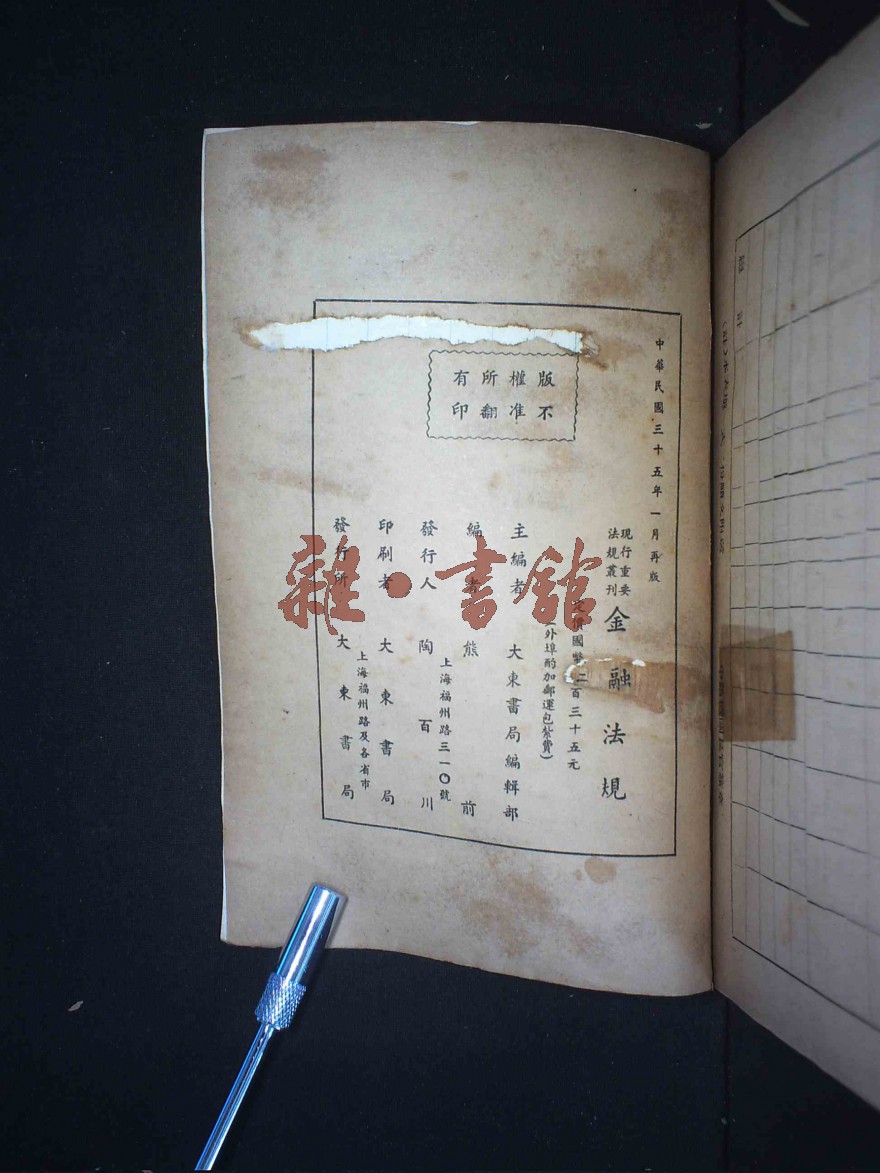 中華民國三十五年一月再版
現行重要
法規叢刊
金融法規
定價國幣二百三十五元
(外埠酌加郵運包紮費)
版權所有
不准翻印
主編者 大東書局編輯部
編者 熊 前
發行人 陶百川
上海福州路三一〇號
印刷者 大東書局
上海福州路及各省市
發行所 大東書局
雜·書舘